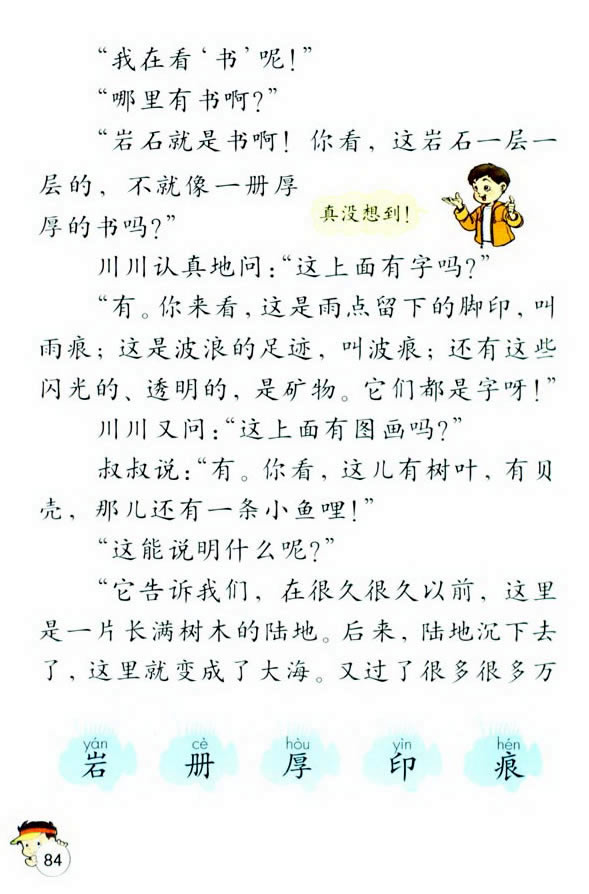 “我在看‘书’呢！”
“哪里有书啊？”
“岩石就是书啊！你看，这岩石一层一
层的，不就像一册厚
厚的书吗？”
真没想到！
川川认真地问：“这上面有字吗？”
“有。你来看，这是雨点留下的脚印，叫
雨痕；这是波浪的足迹，叫波痕；还有这些
闪光的、透明的，是矿物。它们都是字呀！”
川川又问：“这上面有图画吗？”
叔叔说：“有。你看，这儿有树叶，有贝
壳，那儿还有一条小鱼哩！”
“这能说明什么呢？”
“它告诉我们，在很久很久以前，这里
是一片长满树木的陆地。后来，陆地沉下去
了，这里就变成了大海。又过了很多很多万
yán cè hòu yìn hén
岩 册 厚 印 痕
84